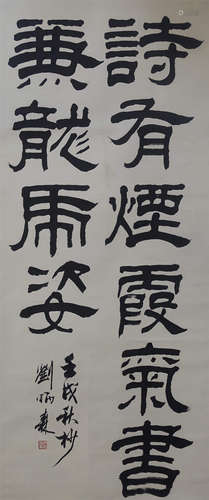 詩有煙霞氣書
兼龍虎姿
壬戌秋杪
劉炳森